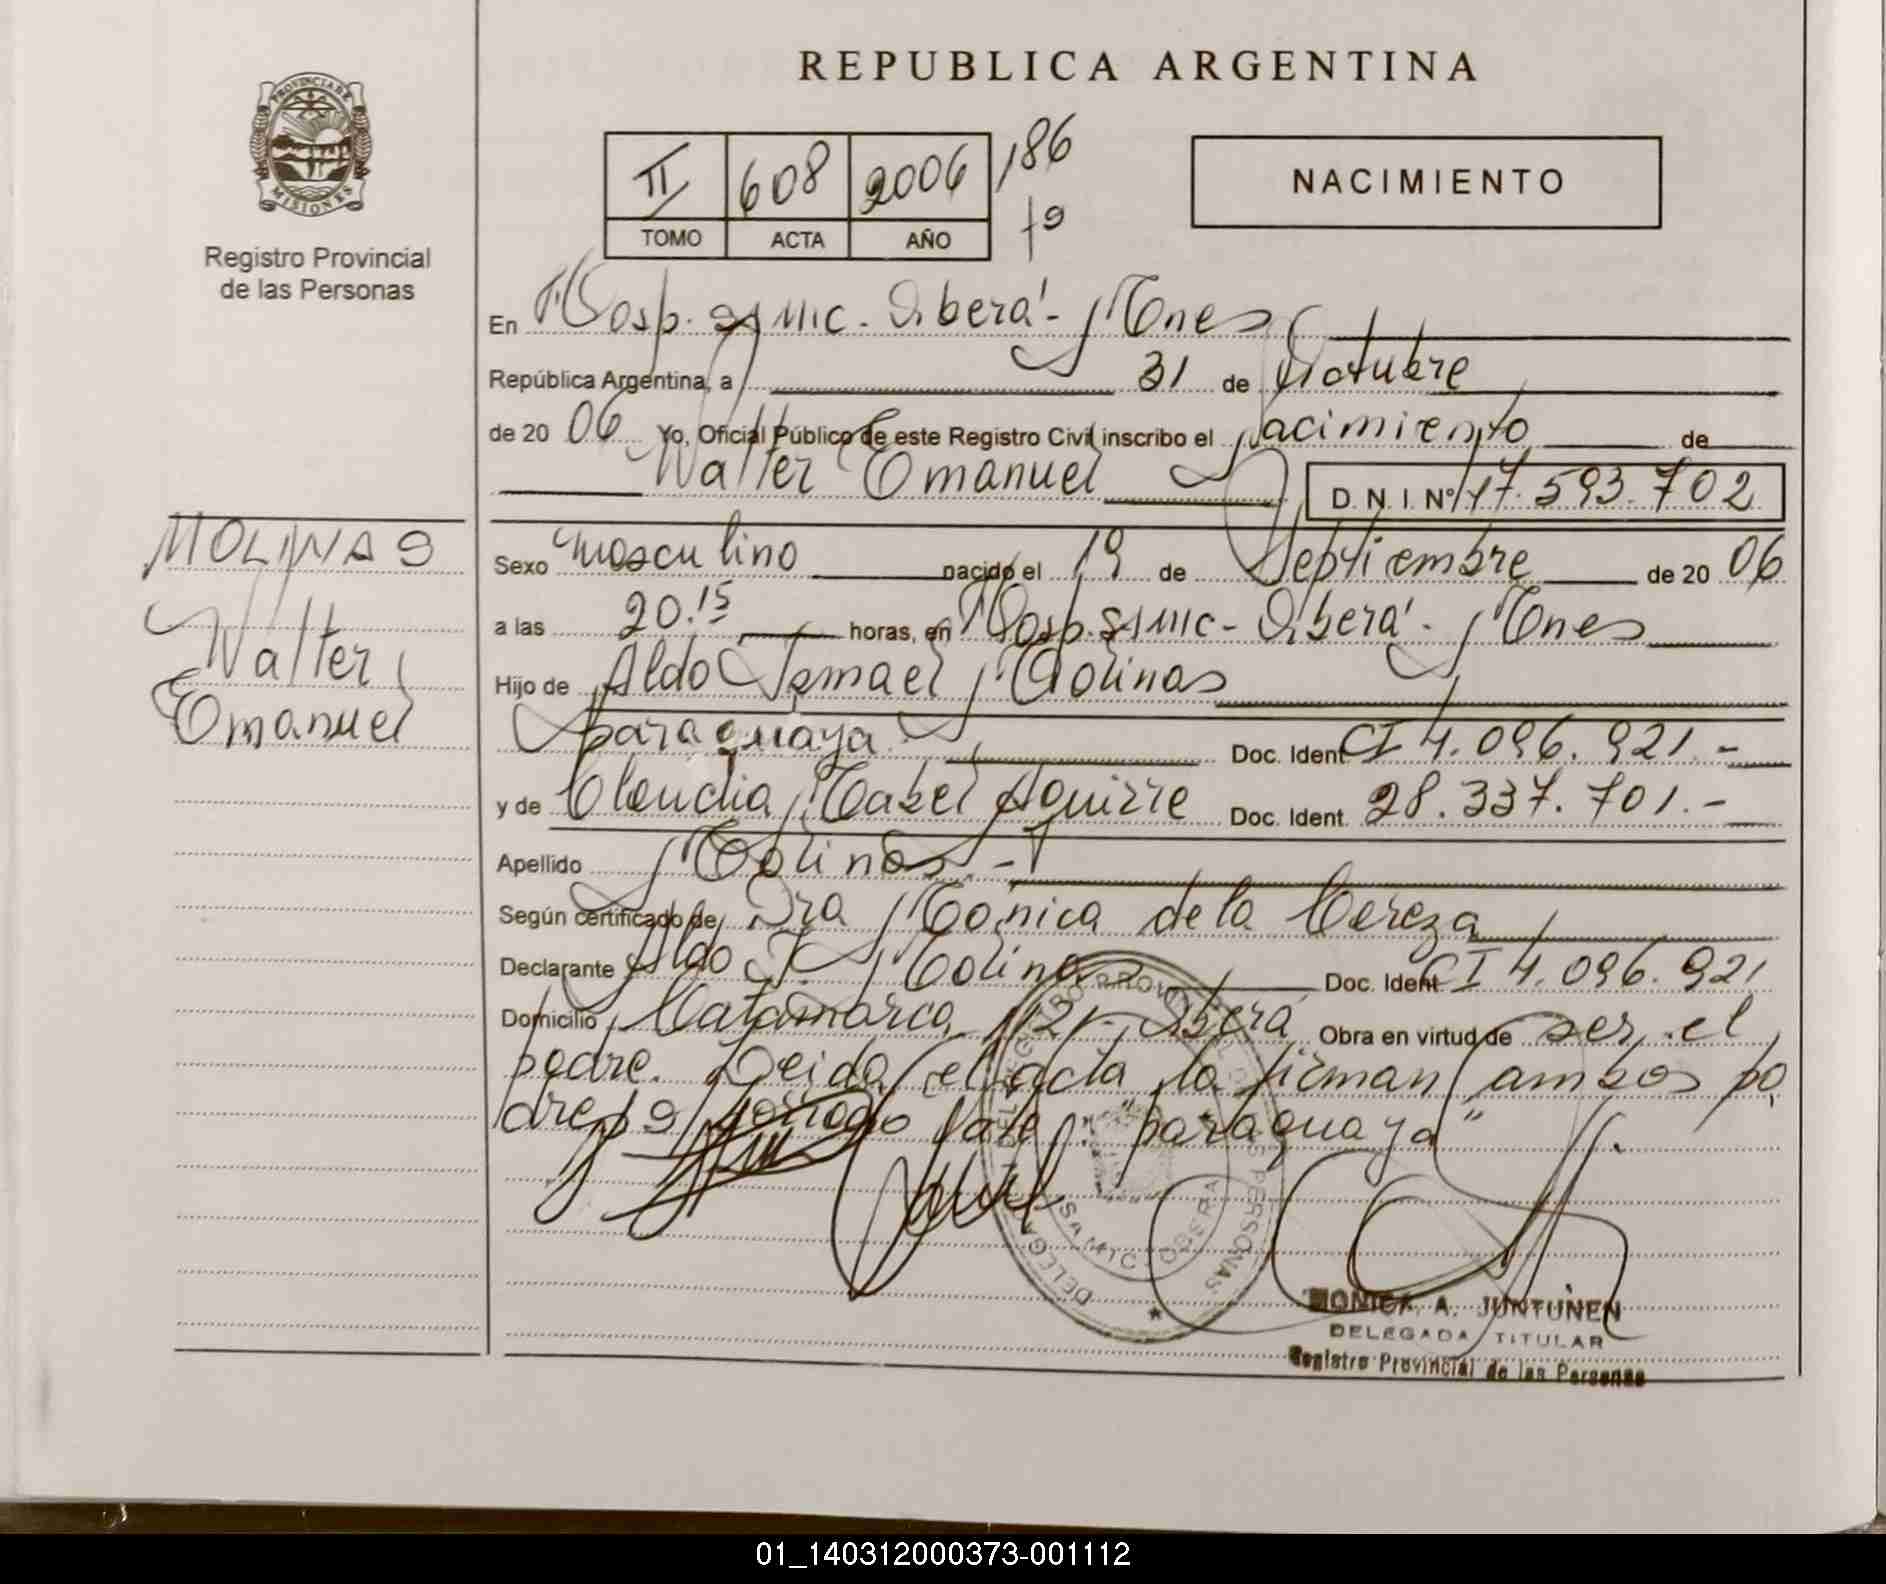 REPUBLICA ARGENTINA
PROVINCIA DE
MISIONES
Registro Provincial
de las Personas
II 608 2006 186
TOMO ACTA AÑO
NACIMIENTO
En Hosp. SAMIC - Oberá - Mnes
República Argentina, a 31 de Octubre
de 20 06 Yo, Oficial Público de este Registro Civil inscribo el Nacimiento de
Walter Emanuel D. N. I. Nº 47.593.702
MOLINAS
Walter
Emanuel
Sexo Masculino nacido el 19 de Septiembre de 20 06
a las 20.15 horas, en Hosp. SAMIC - Oberá - Mnes
Hijo de Aldo Ismael Molinas
paraguaya Doc. Ident. CI 4.096.921.-
y de Claudia Mabel Aguirre Doc. Ident. 28.337.701.-
Apellido Molinas.-
Según certificado de Dra Monica de la Cereza
Declarante Aldo I. Molinas Doc. Ident. CI 4.096.921
Domicilio Catamarca Oberá Obra en virtud de ser el
padre. Leida el acta la firman ambos pa
dres s/ vale: "paraguaya"
REGISTRO PROVINCIAL DE LAS PERSONAS
DELEGACION
SAMIC OBERA
MONICA A. JUNTUNEN
DELEGADA TITULAR
Registro Provincial de las Personas
01_140312000373-001112